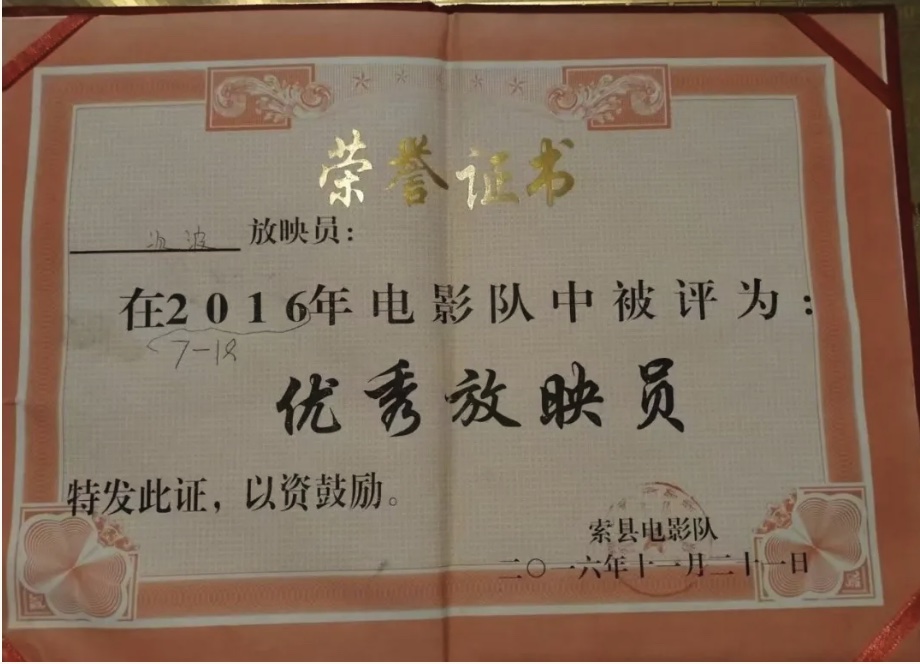 荣誉证书
次波 放映员：
在2016年电影队中被评为：
7-18
优秀放映员
特发此证，以资鼓励。
索县电影队
二〇一六年十一月二十一日